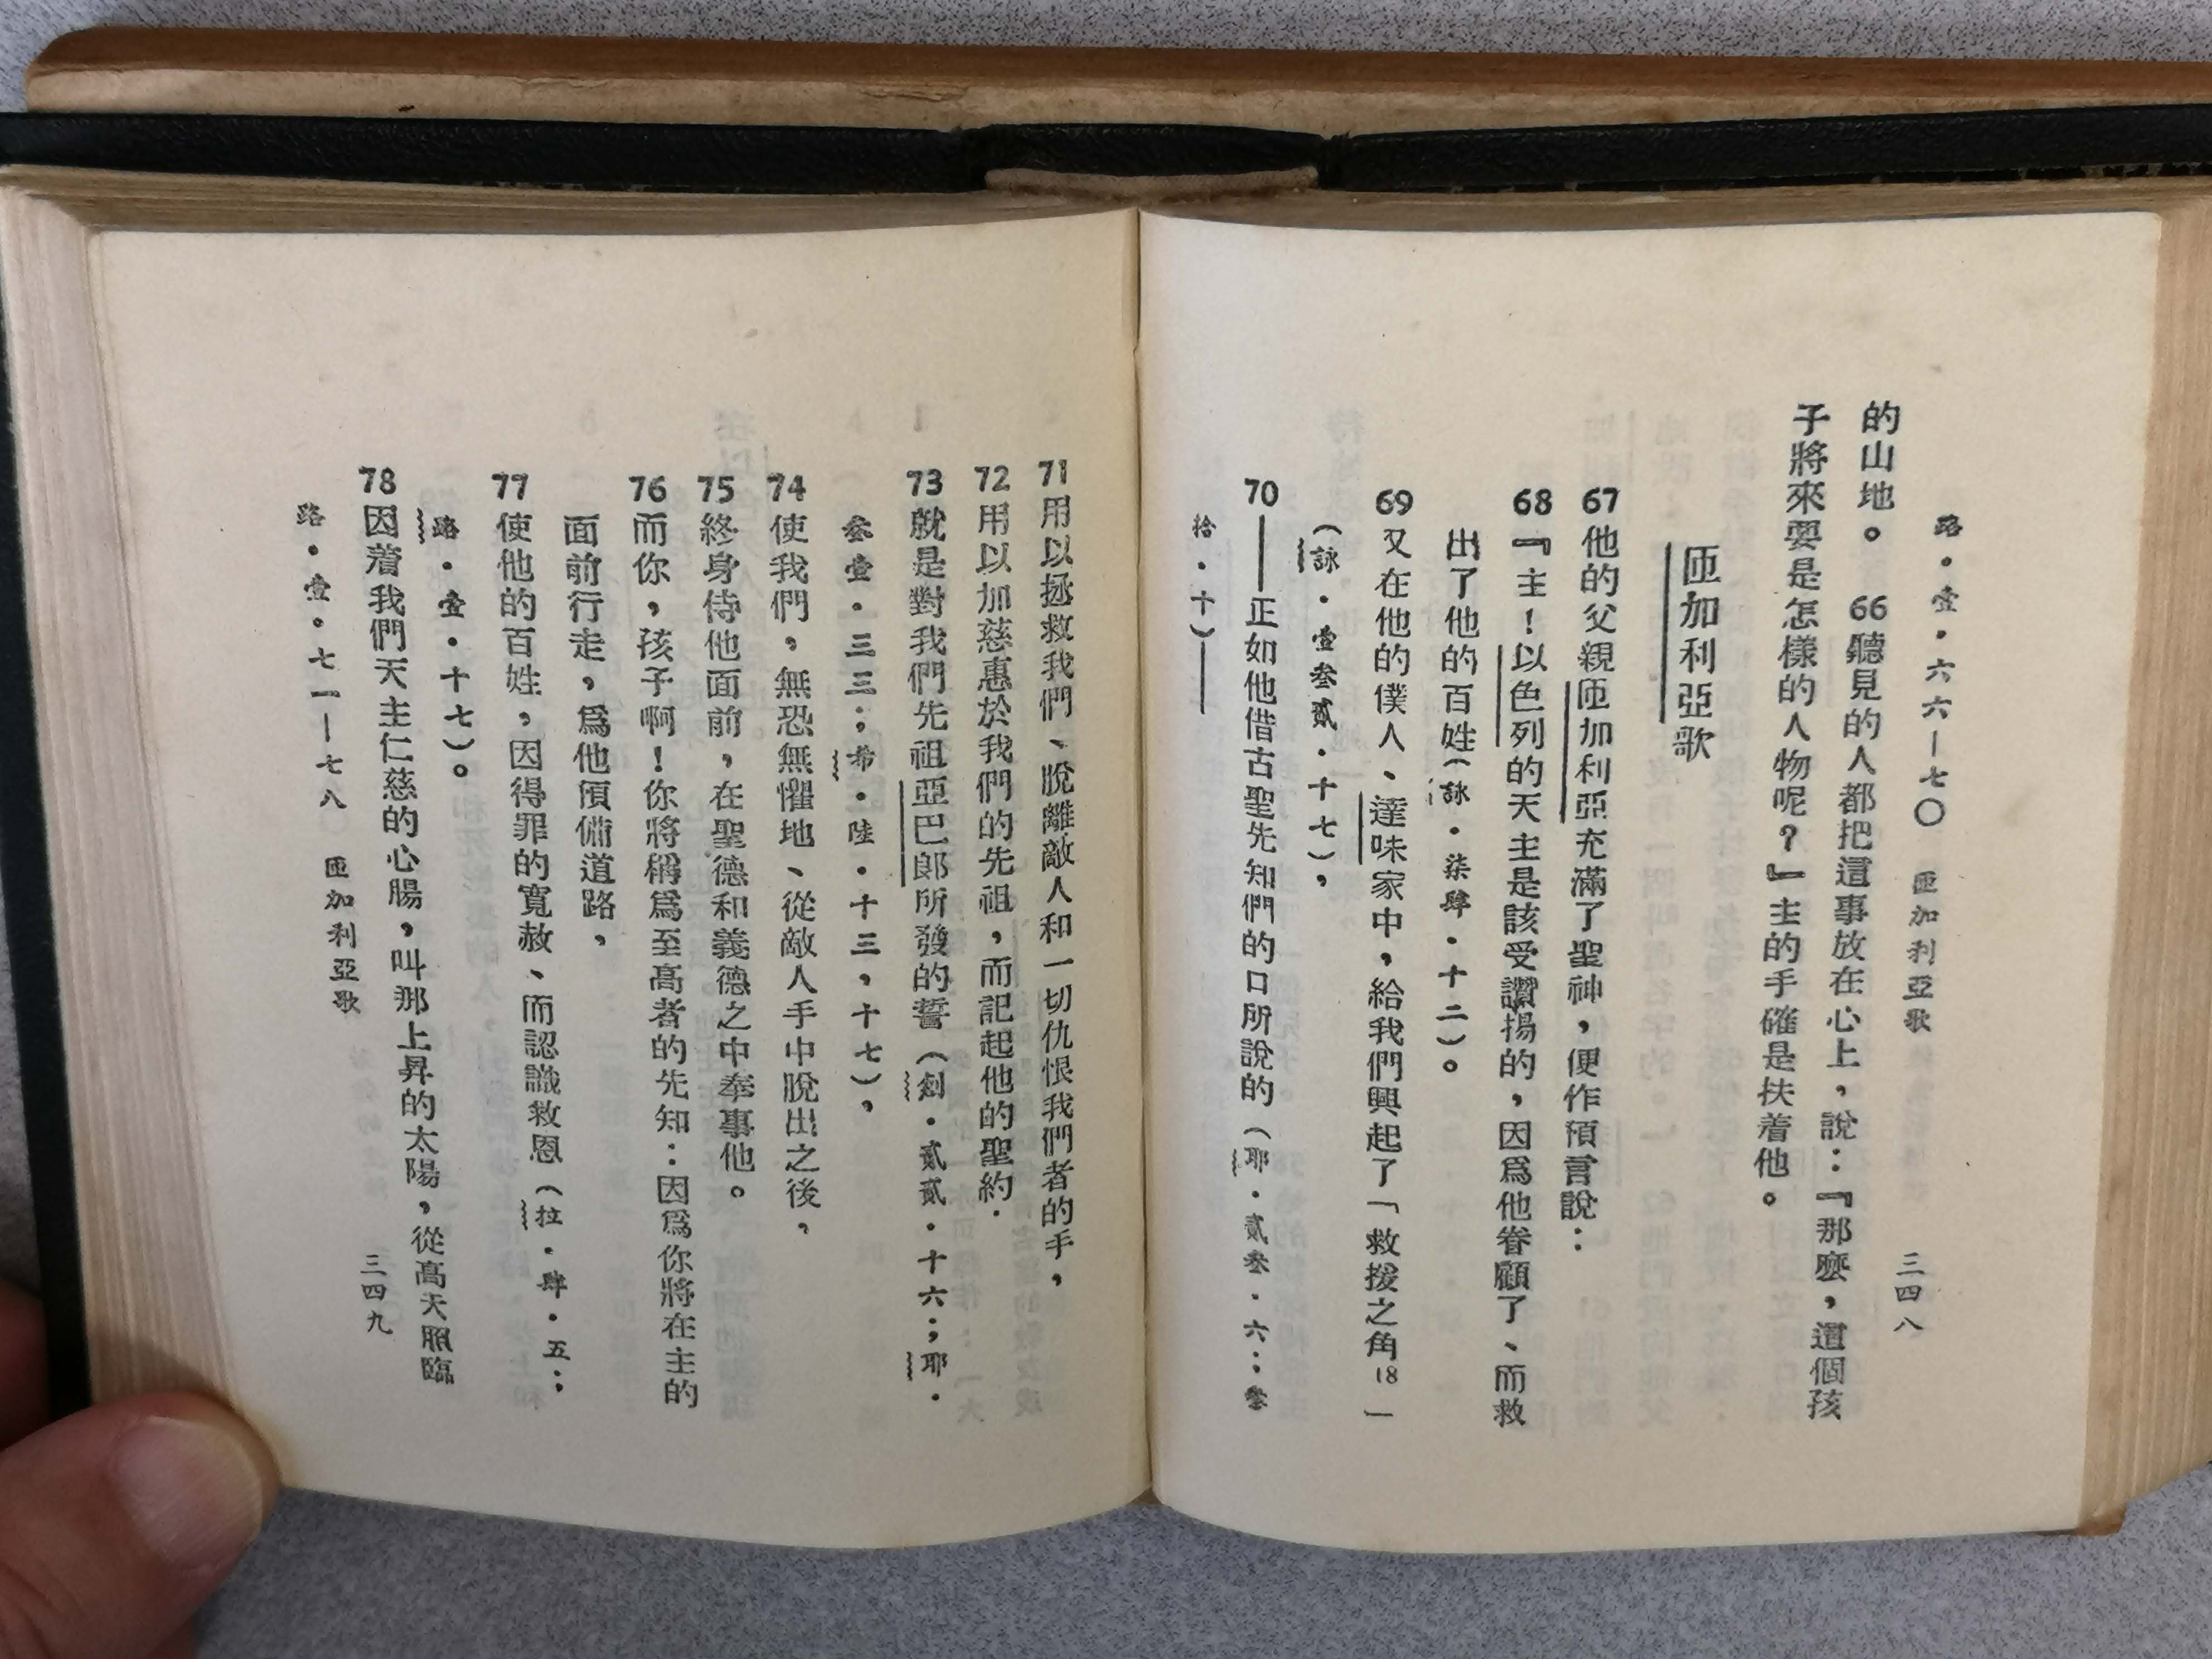 路・壹・六六—七〇　匝加利亞歌　三四八
的山地。　66聽見的人都把這事放在心上，說：『那麼，這個孩
子將來要是怎樣的人物呢？』主的手確是扶着他。
匝加利亞歌
67他的父親匝加利亞充滿了聖神，便作預言說：
68『主！以色列的天主是該受讚揚的，因爲他眷顧了、而救
出了他的百姓（詠・柒肆・十二）。
69又在他的僕人、達味家中，給我們興起了「救援之角18」
（詠・壹叁貳・十七），
70——正如他借古聖先知們的口所說的（耶・貳叁・六；叁
拾・十）——
71用以拯救我們、脫離敵人和一切仇恨我們者的手，
72用以加慈惠於我們的先祖，而記起他的聖約・
73就是對我們先祖亞巴郎所發的誓（創・貳貳・十六；耶・
叁壹・三三；希・陸・十三，十七），
74使我們，無恐無懼地、從敵人手中脫出之後，
75終身侍他面前，在聖德和義德之中奉事他。
76而你，孩子啊！你將稱爲至高者的先知：因爲你將在主的
面前行走，爲他預備道路，
77使他的百姓，因得罪的寬赦、而認識救恩（拉・肆・五；
路・壹・十七）。
78因着我們天主仁慈的心腸，叫那上昇的太陽，從高天照臨
路・壹・七一—七八　匝加利亞歌　三四九